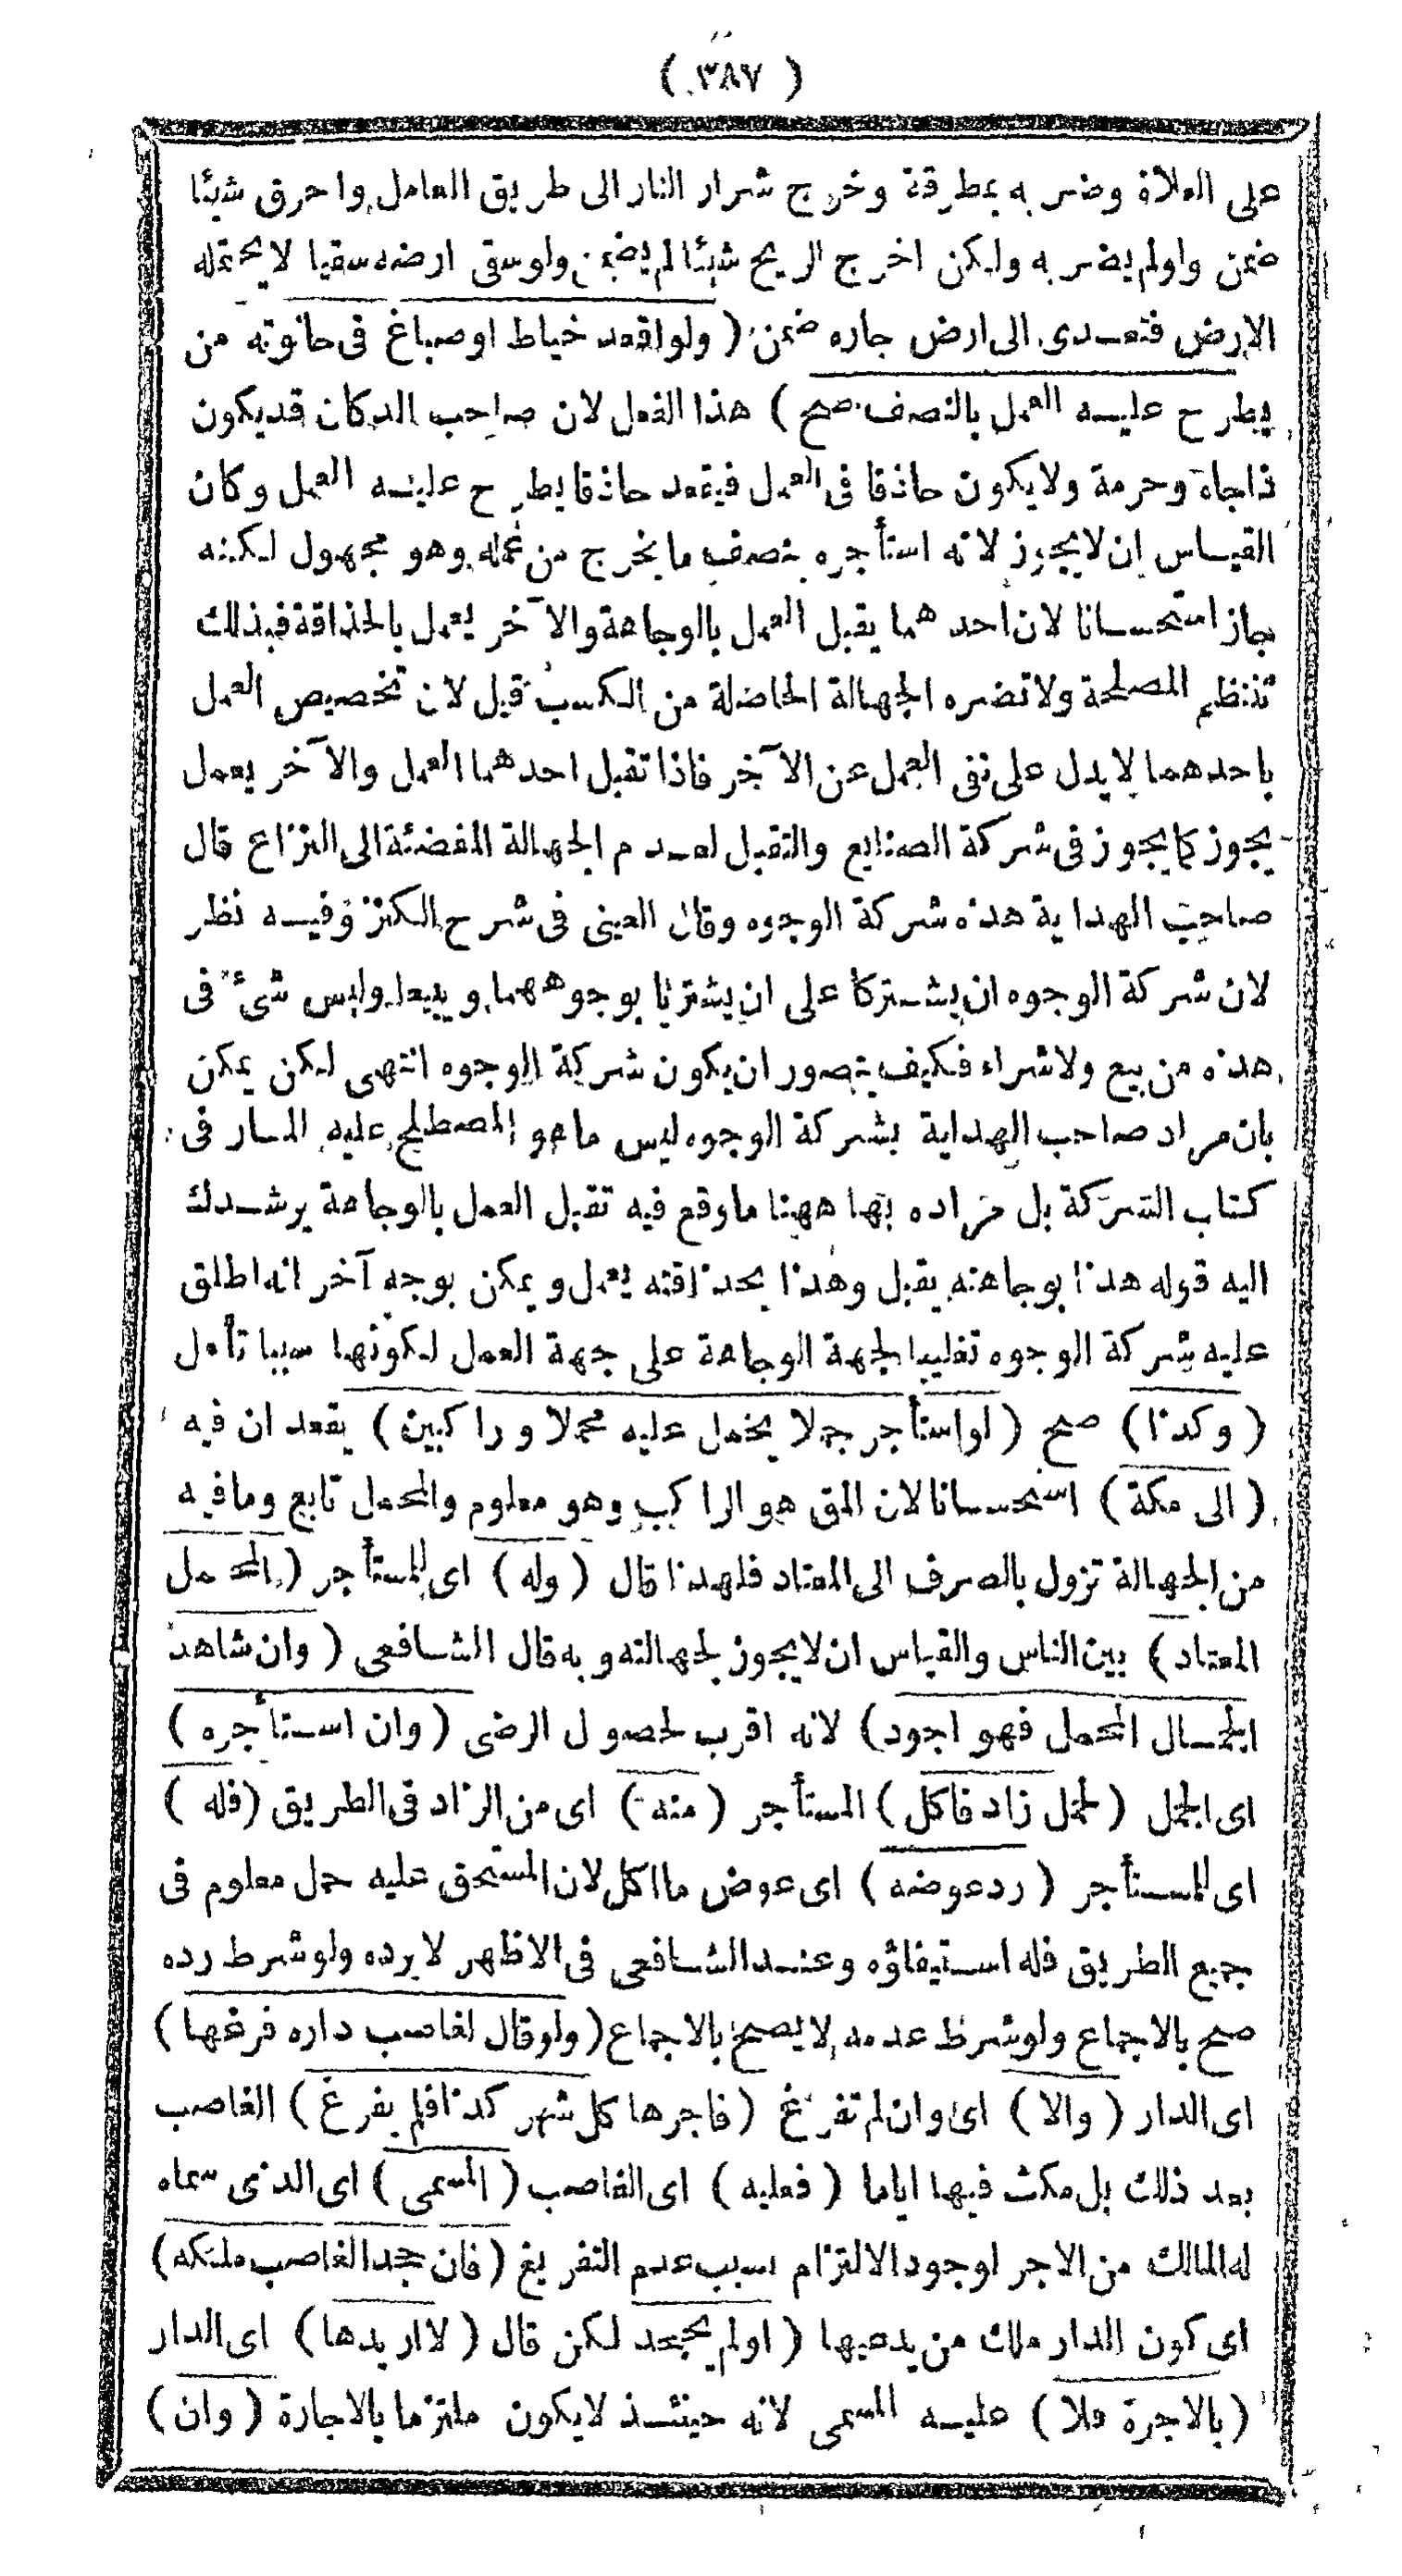 ( ٣٨٧ )
على العلاة وضربه بمطرقة وخرج شرار النار الى طريق العامل واحرق شيئا
ضمن ولولم يضربه ولكن اخرج الريح شيئا لم يضمن ولوسقى ارضه سقيا لايحتمله
الارض فتعدى الى ارض جاره ضمن ( ولواقعد خياط اوصباغ فى حانوته من
يطرح عليه العمل بالنصف صح ) هذا الفعل لان صاحب الدكان قديكون
ذاجاه وحرمة ولايكون حاذقا فى العمل فيقعد حاذقا يطرح عليه العمل وكان
القياس ان لايجوز لانه استأجره بنصف مايخرج من عمله وهو مجهول لكنه
جاز استحسانا لان احدهما يقبل العمل بالوجاهة والآخر يعمل بالحذاقة فبذلك
تنتظم المصلحة ولاتضره الجهالة الحاصلة من الكسب قيل لان تخصيص العمل
باحدهما لايدل على نفى العمل عن الآخر فاذا تقبل احدهما العمل والآخر يعمل
يجوز كمايجوز فى شركة الصنايع والتقبل لعدم الجهالة المفضئة الى النزاع قال
صاحب الهداية هذه شركة الوجوه وقال العينى فى شرح الكنز وفيه نظر
لان شركة الوجوه ان يشتركا على ان يشتريا بوجوههما ويبيعا وليس شئ فى
هذه من بيع ولاشراء فكيف يتصور ان يكون شركة الوجوه انتهى لكن يمكن
بان مراد صاحب الهداية بشركة الوجوه ليس ماهو المصطلح عليه المار فى
كتاب الشركة بل مراده بها ههنا ماوقع فيه تقبل العمل بالوجاهة يرشدك
اليه قوله هذا بوجاهته يقبل وهذا بحذاقته يعمل ويمكن بوجه آخر انه اطلق
عليه شركة الوجوه تغليبا لجهة الوجاهة على جهة العمل لكونها سببا تأمل
( وكذا ) صح ( لواستأجر جملا يحمل عليه محملا وراكبين ) يقعدان فيه
( الى مكة ) استحسانا لان المق هو الراكب وهو معلوم والمحمل تابع ومافيه
من الجهالة تزول بالصرف الى المعتاد فلهذا قال ( وله ) اى للمستأجر ( المحمل
المعتاد ) بين الناس والقياس ان لايجوز لجهالته وبه قال الشافعى ( وان شاهد
الجمال المحمل فهو اجود ) لانه اقرب لحصول الرضى ( وان استأجره )
اى الجمل ( لحمل زاد فاكل ) المستأجر ( منه ) اى من الزاد فى الطريق ( فله )
اى للمستأجر ( ردعوضه ) اى عوض مااكل لان المستحق عليه حمل معلوم فى
جميع الطريق فله استيفاؤه وعند الشافعى فى الاظهر لايرده ولوشرط رده
صح بالاجماع ولوشرط عدمه لايصح بالاجماع ( ولوقال لغاصب داره فرغها )
اى الدار ( والا ) اى وان لم تفرغ ( فاجرها كل شهر كذا فلم يفرغ ) الغاصب
بعد ذلك بل مكث فيها اياما ( فعليه ) اى الغاصب ( المسمى ) اى الذى سماه
له المالك من الاجر لوجود الالتزام بسبب عدم التفريغ ( فان جحد الغاصب ملكه )
اى كون الدار ملك من يدعيها ( اولم يجحد لكن قال ( لااريدها ) اى الدار
( بالاجرة فلا ) عليه المسمى لانه حينئذ لايكون ملتزما بالاجارة ( وان )